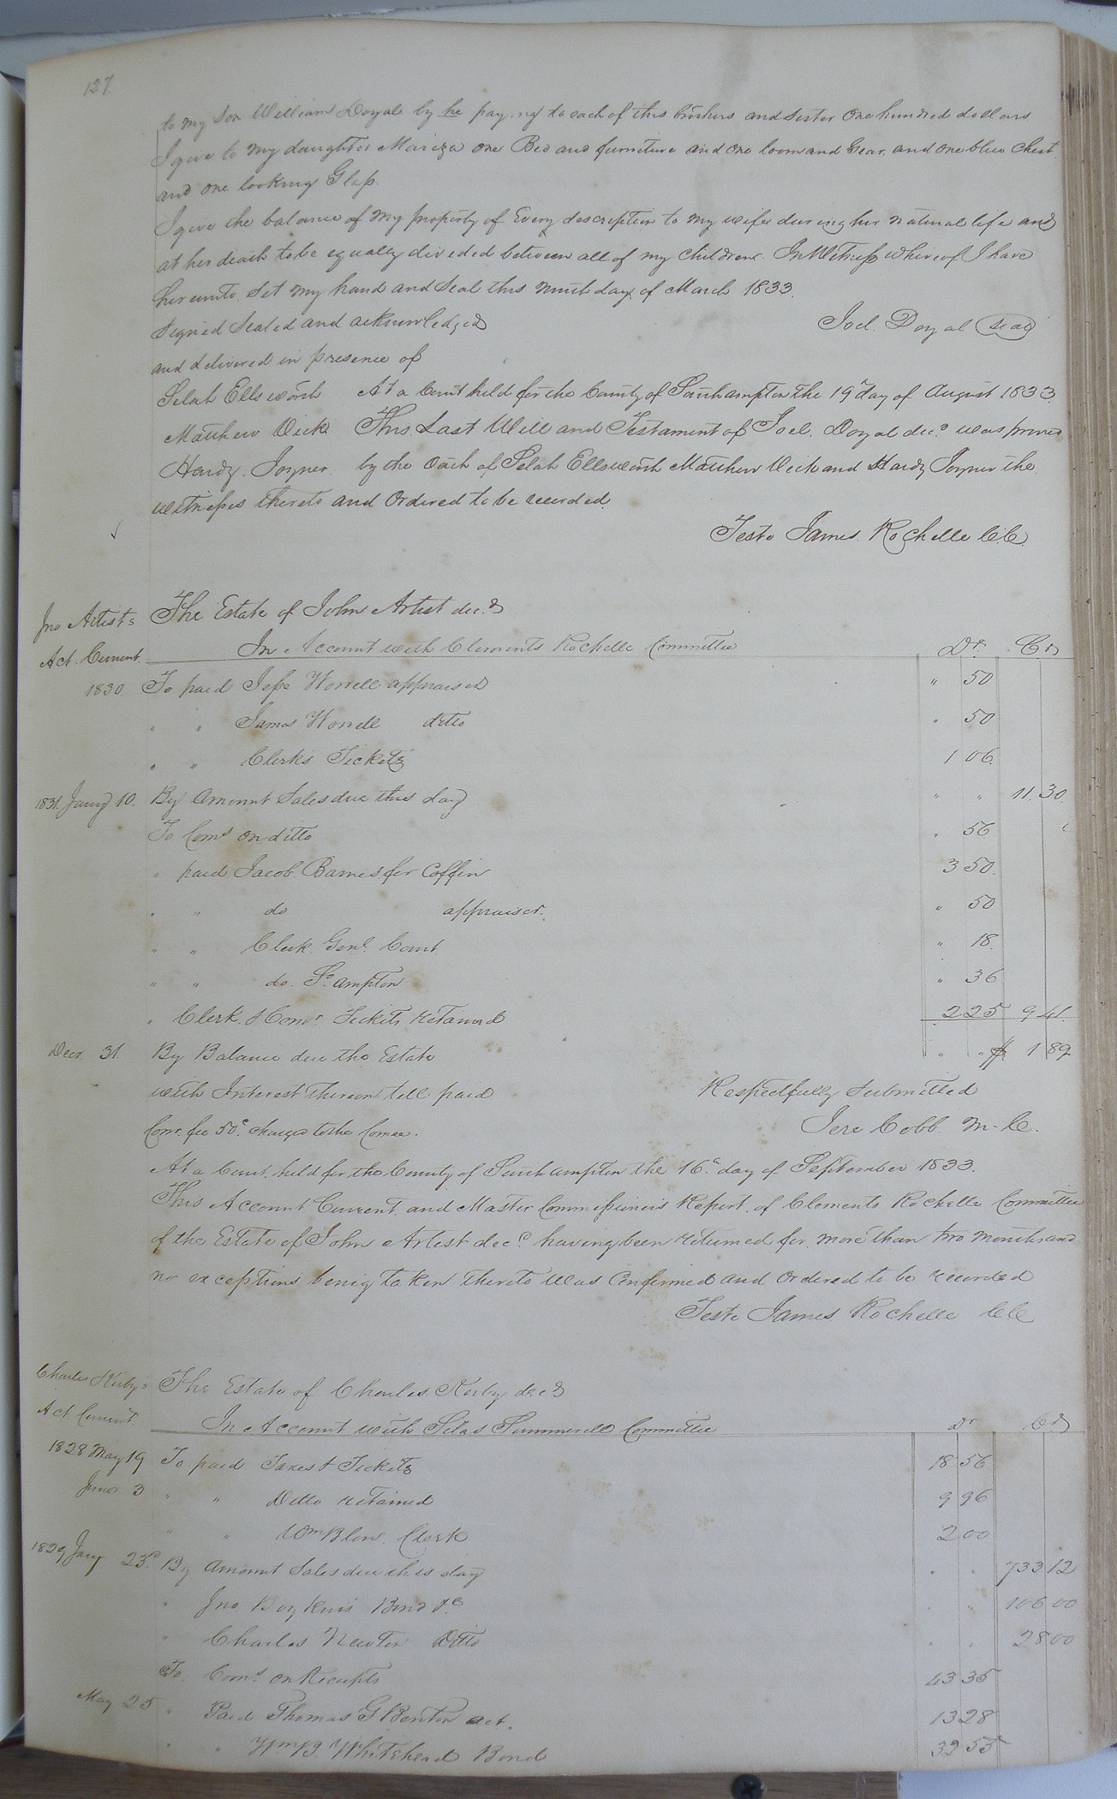 127
to my Son William Doyal by he paying to each of this brothers and sister One hundred dollars
I give to my daughter Mariza one Bed and furniture and one loom and Gear, and one blue Chest
and one looking Glass.
I give the balance of my property of Every description to my wife during her natural life and
at her death to be equally divided between all of my Children. In Witness whereof I have
hereunto Set my hand and Seal this ninth day of March 1833.
Signed Sealed and acknowledged Joel. Doyal seal
and delivered in presence of
Selah Ellsworth At a Court held for the County of Southampton the 19th day of August 1833.
Matthew Vick This Last Will and Testament of Joel. Doyal decd. was proved
Hardy. Joyner. by the oath of Selah Ellsworth Matthew Vick and Hardy Joyner the
witnesses thereto and Ordered to be recorded.
Teste James Rochelle CC
Jno Artist's The Estate of John Artist decd
Act. Current. In Account with Clements Rochelle Committee Dr. Cr
1830 To paid Jesse Worrell appraiser " 50
" " James Worrell ditto " 50
" " Clerk's Tickets 1 06
1831. Jany 10. By Amount Sales due this day " " 11.30
To Coms on ditto " 56
" paid Jacob Barnes for Coffin 3 50.
" " do appraiser. " 50
" " Clerk Genl. Court " 18.
" " do. So.ampton " 36
" Clerk & Comr Tickets retained 2 25 9 41.
Decr 31 By Balance due the Estate " " $ 1 89
with Interest thereon till paid Respectfully Submitted
Comr. fee 50c. charged to the Comee. Jere Cobb M.C.
At a Court held for the County of Southampton the 16th day of September 1833.
This Account Current and Master Commissioner's Report of Clements Rochelle Committee
of the Estate of John Artist decd. having been returned for more than two months and
no exceptions being taken thereto was Confirmed and Ordered to be recorded
Teste James Rochelle CC
Charles Kirby's The Estate of Charles Kirby decd
Act Current. In Account with Silas Summerell Committee Dr Cr
1828 May 19 To paid Taxes & Tickets 18 56
June 3 " " Ditto retained 9 96
" " Wm Blow. Clerk 2 00
1829 Jany 23rd By Amount Sales due this day " " 733 12
" Jno Boykin's Bond &c " " 106 00
" Charles Newton Ditto " " 28 00
To Coms on Receipts 43 35
May 25 " Paid Thomas G Benton act. 13 28
" " Wm B. Whitehead Bond 32 55